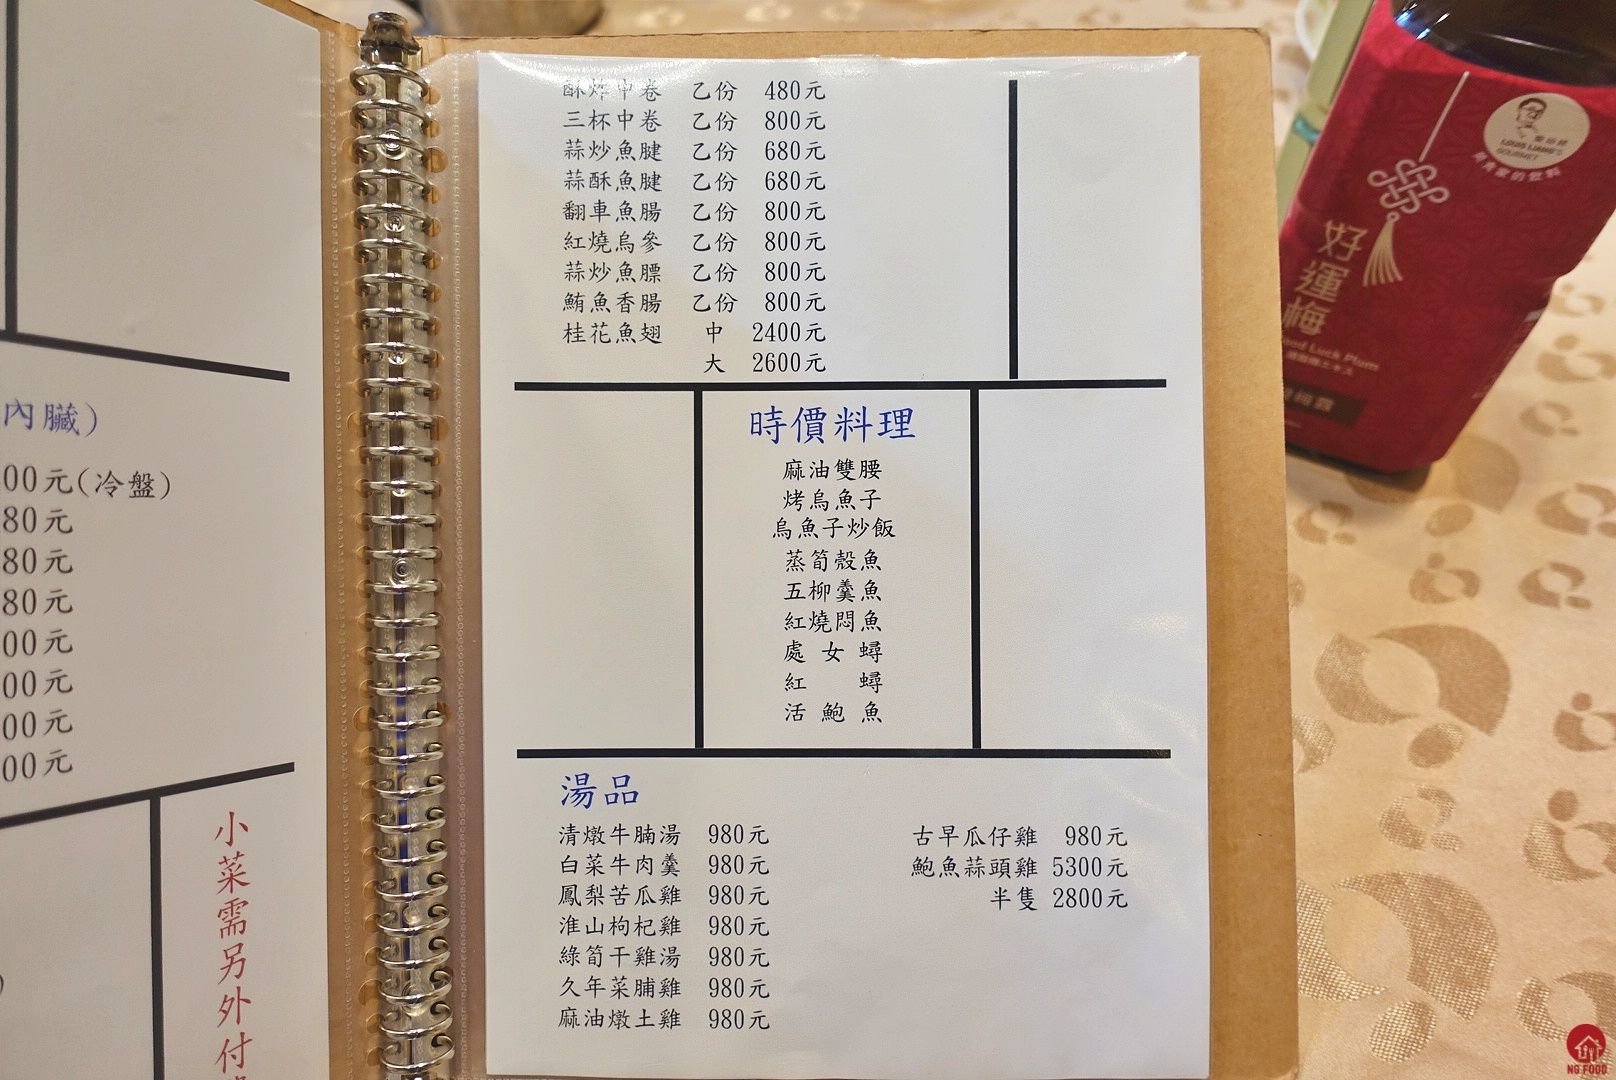 內臟)
00元(冷盤)
80元
80元
80元
00元
00元
00元
00元
小菜需另外付
酥炸中卷 乙份 480元
三杯中卷 乙份 800元
蒜炒魚腱 乙份 680元
蒜酥魚腱 乙份 680元
翻車魚腸 乙份 800元
紅燒烏參 乙份 800元
蒜炒魚膘 乙份 800元
鮪魚香腸 乙份 800元
桂花魚翅 中 2400元
大 2600元
時價料理
麻油雙腰
烤烏魚子
烏魚子炒飯
蒸筍殼魚
五柳羹魚
紅燒悶魚
處女蟳
紅蟳
活鮑魚
湯品
清燉牛腩湯 980元
白菜牛肉羹 980元
鳳梨苦瓜雞 980元
淮山枸杞雞 980元
綠筍干雞湯 980元
久年菜脯雞 980元
麻油燉土雞 980元
古早瓜仔雞 980元
鮑魚蒜頭雞 5300元
半隻 2800元
LOUIS LIANG'S
GOURMET
好運梅
Good Luck Plum
NG FOOD